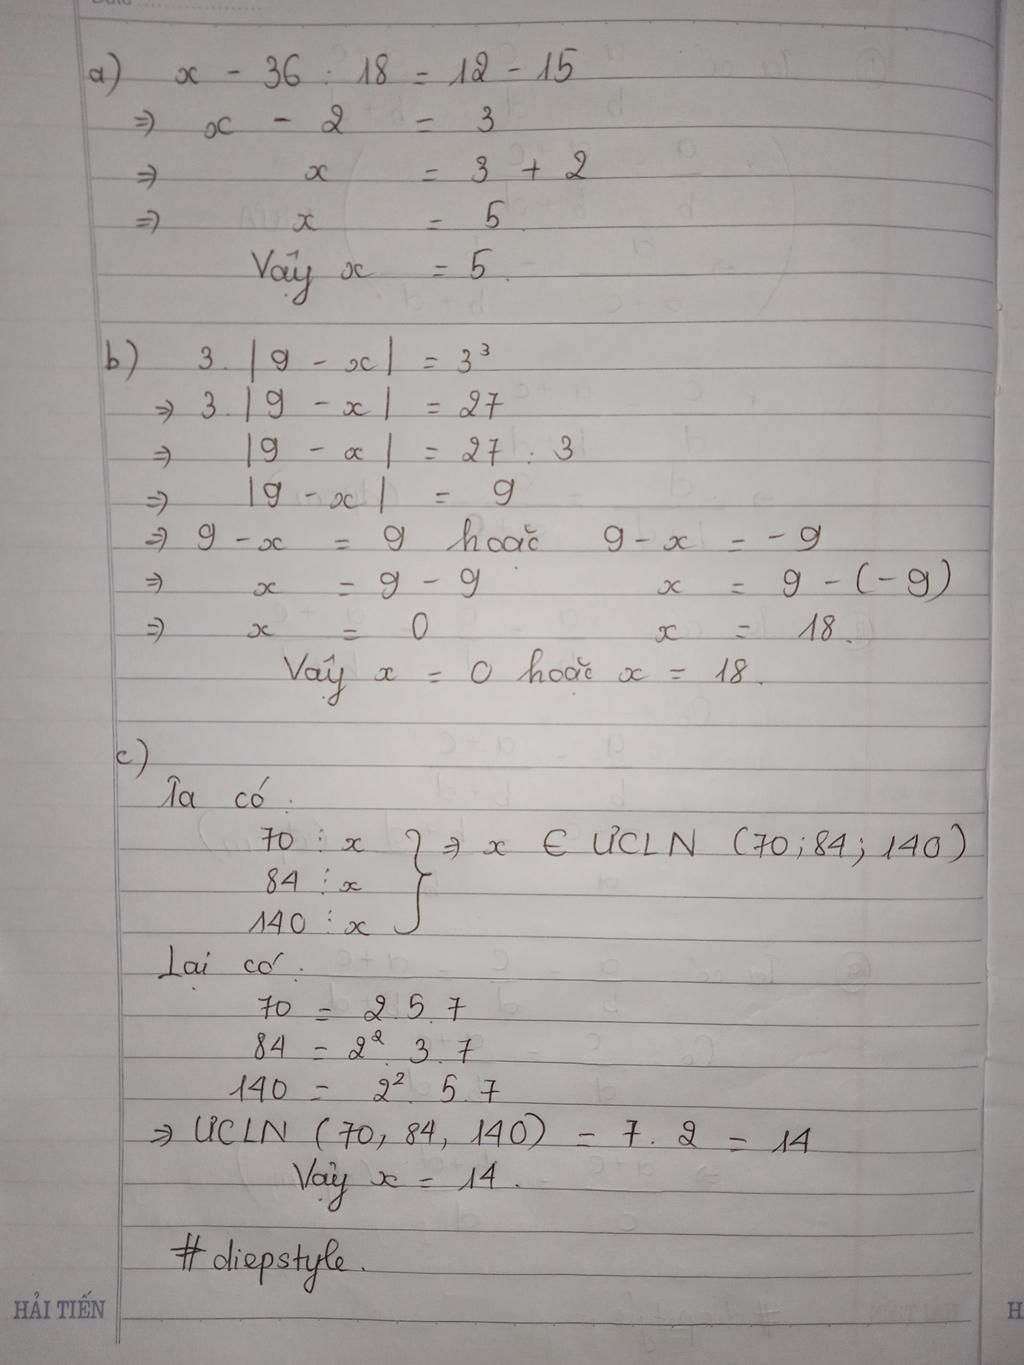 a) x - 36 : 18 = 12 - 15
⇒ x - 2 = 3
⇒ x = 3 + 2
⇒ x = 5
Vậy x = 5.
b) 3. |9 - x| = 3³
⇒ 3. |9 - x| = 27
⇒ |9 - x| = 27 : 3
⇒ |9 - x| = 9
⇒ 9 - x = 9 hoặc 9 - x = - 9
⇒ x = 9 - 9 x = 9 - (-9)
⇒ x = 0 x = 18.
Vậy x = 0 hoặc x = 18.
c)
Ta có :
70 ⋮ x } ⇒ x ∈ ƯCLN (70; 84; 140)
84 ⋮ x
140 ⋮ x
Lại có :
70 = 2. 5. 7
84 = 2². 3. 7
140 = 2². 5. 7
⇒ ƯCLN (70, 84, 140) = 7. 2 = 14
Vậy x = 14.
#diepstyle.
HẢI TIẾN